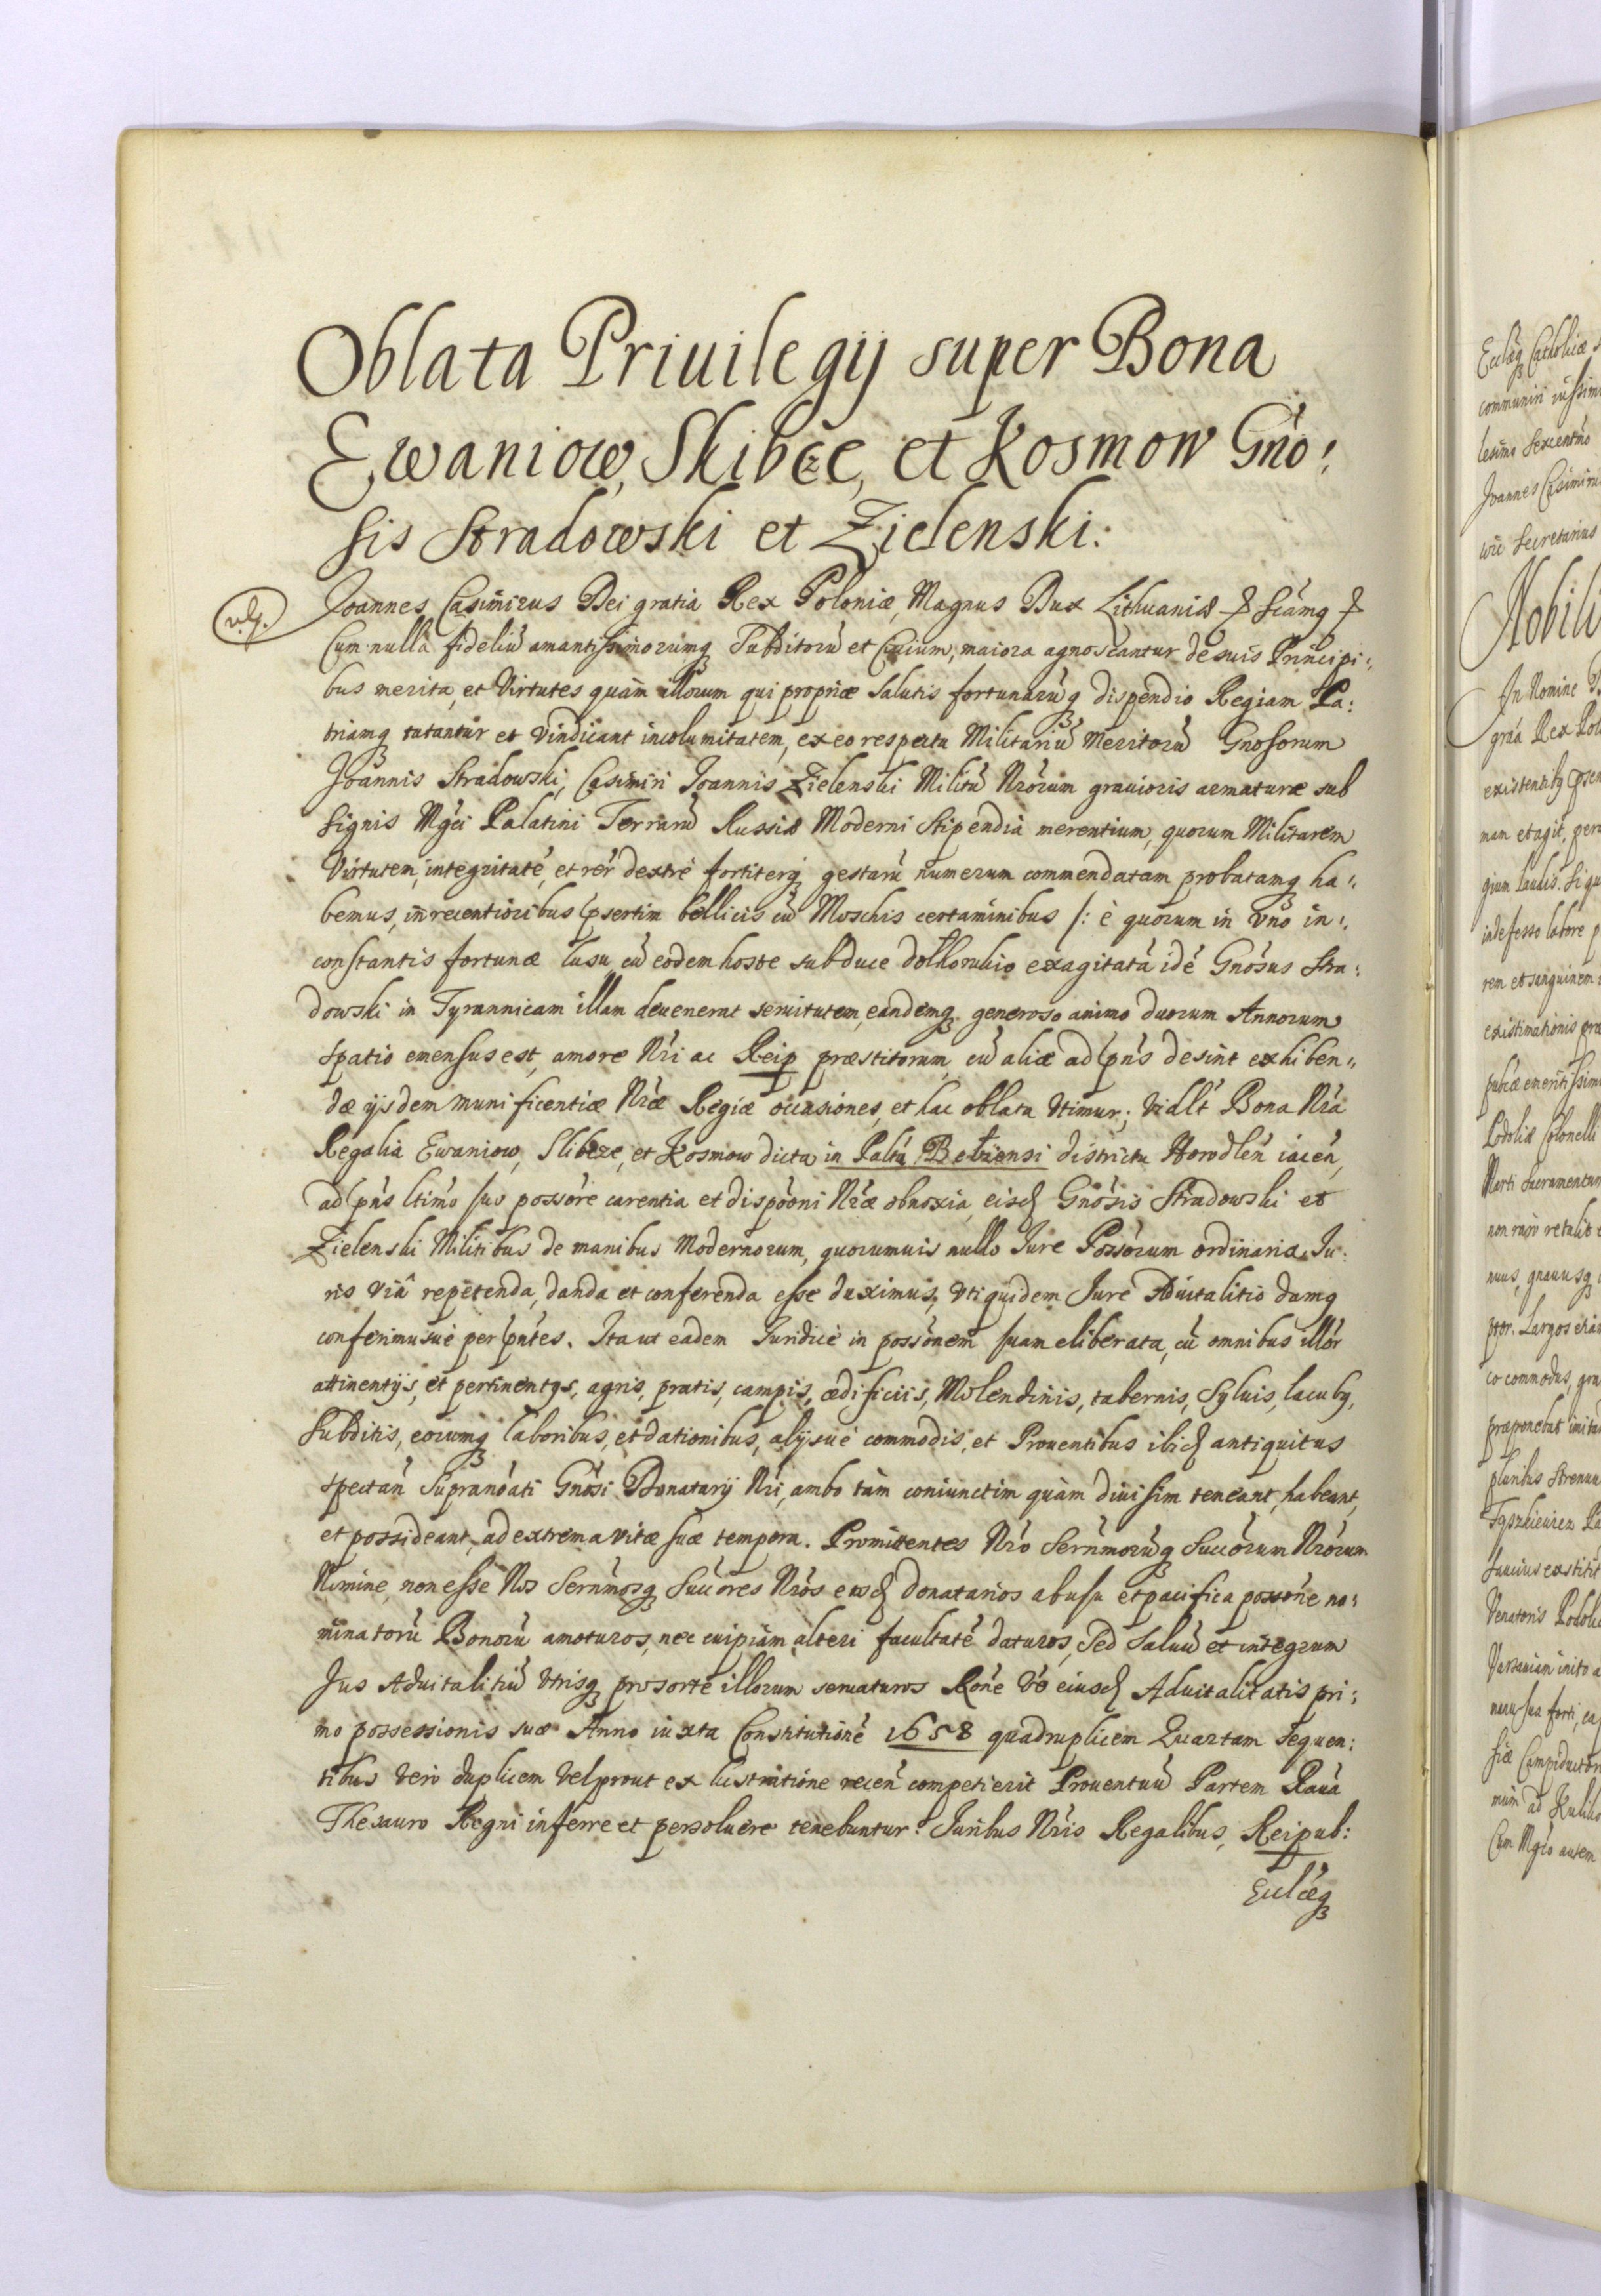 Oblata Priuilegij super Bona
Ewaniow, Skibcze, et Kosmow Gno:
sis Stradowski et Zielenski.
Joannes Casimirus Dei gratia Rex Poloniæ, Magnus Dux Lithuaniæ
Cum nulla fideliũ amantissimorumq3 Subditorũ et Ciuium, maiora agnoscantur de suis Principi:
bus merita, et Virtutes quàm illorum qui propriæ Salutis fortunarũq3 dispendio Regiam Pa:
triamq3 tutantur et Vindicant incolumitatem, ex eo respectu Militariũ Meritorũ Gnosorum
Joannis Stradowski, Casimiri Joannis Zielenski Militũ Nrorum grauioris armaturæ sub
signis Mgci Palatini Terrarũ Russiæ Moderni Stipendia merentium, quorum Militarem
Virtutem, integritatẽ, et rer dextrè fortiterq3 gestarũ numerum commendatam probatamq3 ha:
bemus, in recentioribus psertim bellicis cũ Moschis certaminibus /: è quorum in Vno in:
constantis fortunæ lusu cũ eodem hoste sub duce exagitatâ idẽ Gnosus Stra:
dowski in Tyrannicam illam deuenerat seruitutem, eandemq3 generoso animo duorum Annorum
spatio emensus est, amore Nri ac Reip præstitorum, cũ aliæ ad pns desint exhiben:
dæ ijsdem munificentiæ Nræ Regiæ occasiones, et hac oblata Vtimur; Vidlt Bona Nra
Regalia Ewaniow, Skibcze, et Kosmow dicta in Paltu Belzensi districtu Horodlen iacen,
ad pns ltimo suo possore carentia et dispooni Nræ obnoxia, eisd Gnosis Stradowski et
Zielenski Militibus de manibus Modernorum, quorumuis nullo Jure Possorum ordinaria Ju:
ris Viâ repetenda, danda et conferenda esse duximus, Vti quidem Jure Aduitalitio damq3
conferimusuè per pntes. Ita ut eadem Juridicè in possonem suam eliberata, cũ omnibus illor
attinentijs, et pertinentijs, agris, pratis, campis, ædificiis, Molendinis, tabernis, Syluis, lacubq,
subditis, eorumq3 laboribus, et dationibus, alijsuè commodis, et Prouentibus ibid antiquitus
spectan Supranoati Gnosi Donatarij Nri, ambo tàm coniunctim quàm diuisim teneant, habeant,
et possideant, ad extrema vitæ suæ tempora. Promittentes Nro Sernmorũq3 Succorum Nrorum
Nomine, non esse Nos Sernmosq3 Succores Nros eosd donatarios ab usu et pacifica possone no:
minatorũ Bonorũ amoturos, nec cuipiam alteri facultatẽ daturos, Sed Saluũ et integrum
Jus Aduitalitiũ Vtrisq3 pro sorte illorum seruaturos Rone Vo eiusd Aduitalitatis pri:
mo possessionis suæ Anno iuxta Constitutionẽ 1658 quadruplicem Quartam sequen:
tibus Vero duplicem Vel prout ex lustratione recen competierit Prouentuũ Partem Raua
Thesauro Regni inferre et persoluere tenebuntur. Juribus Nris Regalibus, Reipub:
Eccl'æq3
Ecclæq3 Catholicæ
communiri iussim
lesimo Sexcentmo
Joannes Casimirus
wic Secretarius
Nobili
In Nomine
gra Rex Pol